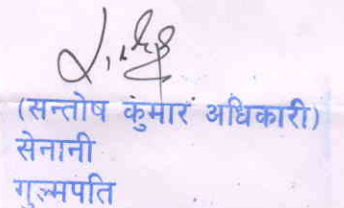 (सन्तोष कुमार अधिकारी)
सेनानी
गुल्मपति